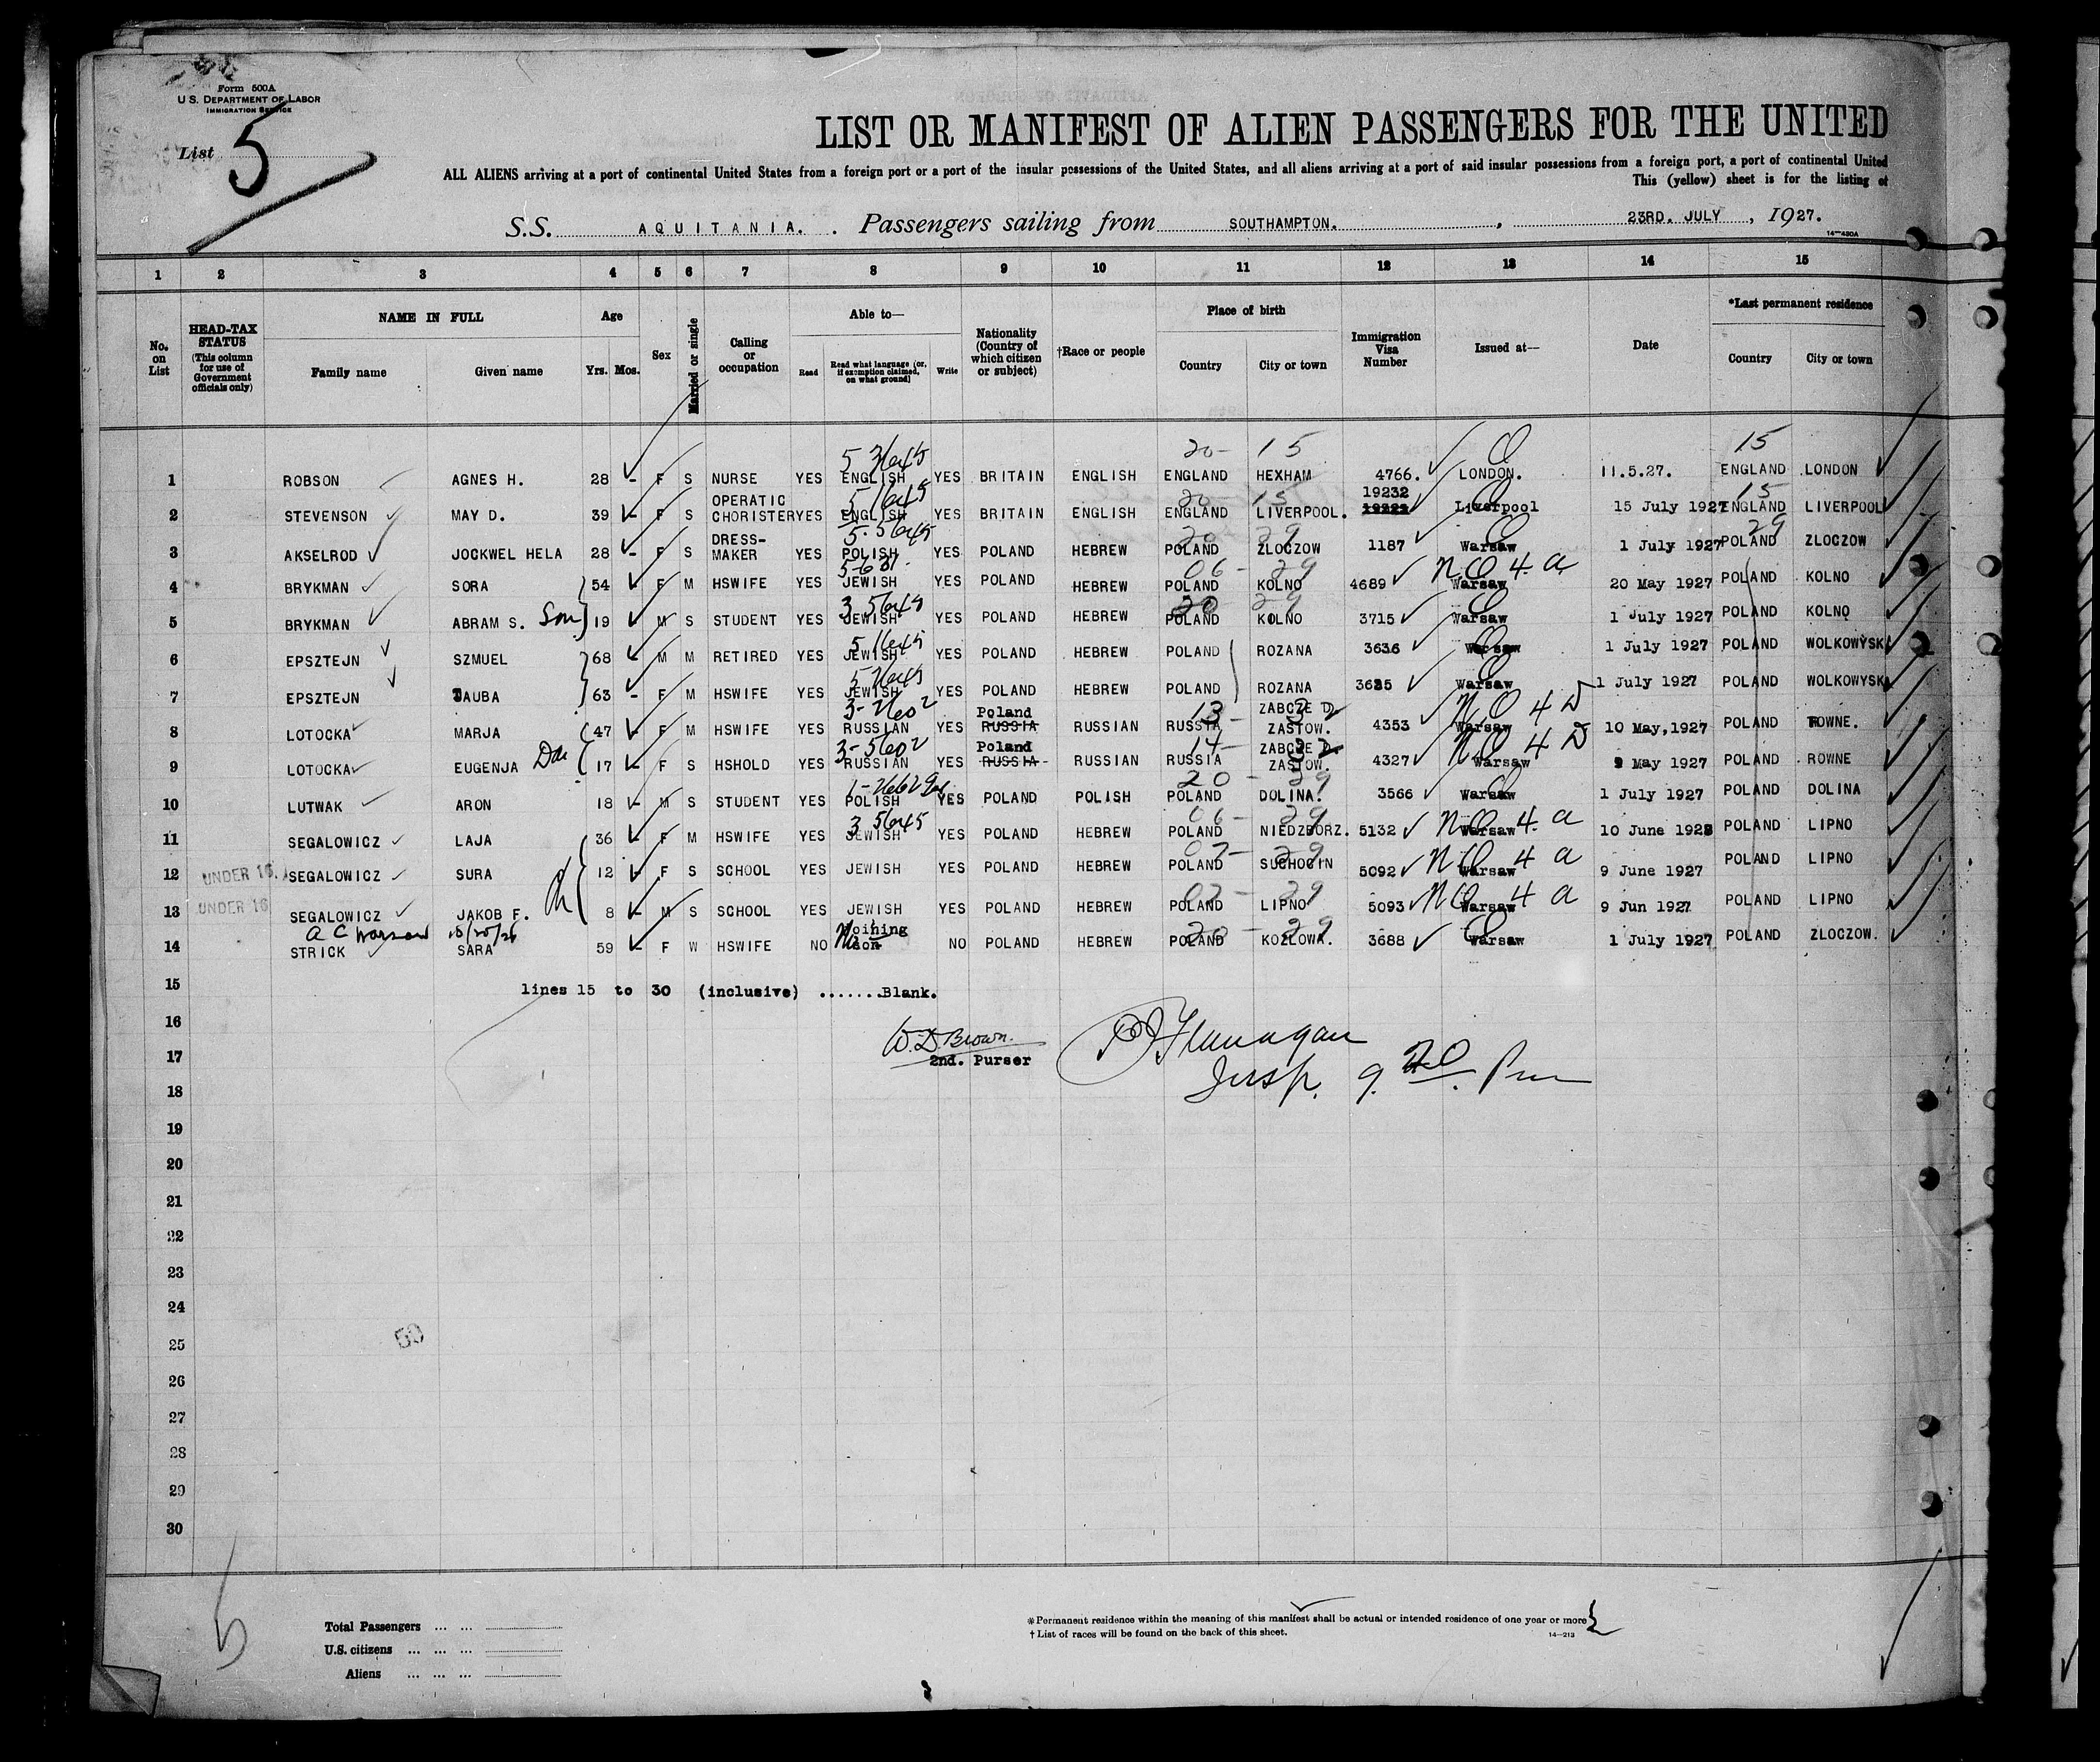 Form 500A
U. S. DEPARTMENT OF LABOR
IMMIGRATION SERVICE
List 5
LIST OR MANIFEST OF ALIEN PASSENGERS FOR THE UNITED
ALL ALIENS arriving at a port of continental United States from a foreign port or a port of the insular possessions of the United States, and all aliens arriving at a port of said insular possessions from a foreign port, a port of continental United
This (yellow) sheet is for the listing of
S.S. AQUITANIA. Passengers sailing from SOUTHAMPTON. , 23RD. JULY , 1927.
14—430A
1 2 3 4 5 6 7 8 9 10 11 12 13 14 15
No. on List
HEAD-TAX STATUS (This column for use of Government officials only)
NAME IN FULL
Family name Given name
Age
Yrs. Mos.
Sex
Married or single
Calling or occupation
Able to—
Read Read what language [or, if exemption claimed, on what ground] Write
Nationality (Country of which citizen or subject)
†Race or people
Place of birth
Country City or town
Immigration Visa Number
Issued at—
Date
*Last permanent residence
Country City or town
20- 15 15
1 ROBSON AGNES H. 28 - F S NURSE YES ENGLISH YES BRITAIN ENGLISH ENGLAND HEXHAM 4766. LONDON. 11.5.27. ENGLAND LONDON
OPERATIC 20- 15 19232 15
2 STEVENSON MAY D. 39 - F S CHORISTER YES ENGLISH YES BRITAIN ENGLISH ENGLAND LIVERPOOL. Liverpool 15 July 1927 ENGLAND LIVERPOOL
DRESS- 29 29
3 AKSELROD JOCKWEL HELA 28 - F S MAKER YES POLISH YES POLAND HEBREW POLAND ZLOCZOW 1187 Warsaw 1 July 1927 POLAND ZLOCZOW
06 - 29 NQ 4 a
4 BRYKMAN SORA 54 - F M HSWIFE YES JEWISH YES POLAND HEBREW POLAND KOLNO 4689 Warsaw 20 May 1927 POLAND KOLNO
20 29
5 BRYKMAN ABRAM S. Son 19 - M S STUDENT YES JEWISH YES POLAND HEBREW POLAND KOLNO 3715 Warsaw 1 July 1927 POLAND KOLNO
6 EPSZTEJN SZMUEL 68 - M M RETIRED YES JEWISH YES POLAND HEBREW POLAND ROZANA 3636 Warsaw 1 July 1927 POLAND WOLKOWYSK
7 EPSZTEJN TAUBA 63 - F M HSWIFE YES JEWISH YES POLAND HEBREW POLAND ROZANA 3625 Warsaw 1 July 1927 POLAND WOLKOWYSK
Poland 13 - 32 ZABCZE D. NQ 4 D
8 LOTOCKA MARJA 47 - F M HSWIFE YES RUSSIAN YES RUSSIA RUSSIAN RUSSIA ZASTOW. 4353 Warsaw 10 May, 1927 POLAND ROWNE.
Poland 14 - 32 ZABCZE NQ 4 D
9 LOTOCKA EUGENJA Da 17 - F S HSHOLD YES RUSSIAN YES RUSSIA RUSSIAN RUSSIA ZASTOW. 4327 Warsaw 9 May 1927 POLAND ROWNE
20 - 29
10 LUTWAK ARON 18 - M S STUDENT YES POLISH YES POLAND POLISH POLAND DOLINA. 3566 Warsaw 1 July 1927 POLAND DOLINA
06 - 29 NQ 4 a
11 SEGALOWICZ LAJA 36 - F M HSWIFE YES JEWISH YES POLAND HEBREW POLAND NIEDZBORZ. 5132 Warsaw 10 June 192 POLAND LIPNO
07 - 29 NQ 4 a
12 UNDER 16 SEGALOWICZ SURA 12 - F S SCHOOL YES JEWISH YES POLAND HEBREW POLAND SUCHOCIN 5092 Warsaw 9 June 1927 POLAND LIPNO
07 - 29 NQ 4 a
13 UNDER 16 SEGALOWICZ JAKOB F. Ch 8 - M S SCHOOL YES JEWISH YES POLAND HEBREW POLAND LIPNO 5093 Warsaw 9 Jun 1927 POLAND LIPNO
a c Warsaw 20 - 29
14 STRICK SARA 59 - F W HSWIFE NO NO POLAND HEBREW POLAND KOZLOWA. 3688 Warsaw 1 July 1927 POLAND ZLOCZOW.
15 lines 15 to 30 (inclusive) .......Blank.
16 W. D. Brown. P J Flanagan
17 2nd. Purser Insp. 9.20 Pm
18
19
20
21
22
23
24
25 50
26
27
28
29
30
5
Total Passengers
U.S. citizens
Aliens
*Permanent residence within the meaning of this manifest shall be actual or intended residence of one year or more
†List of races will be found on the back of this sheet. 14—213